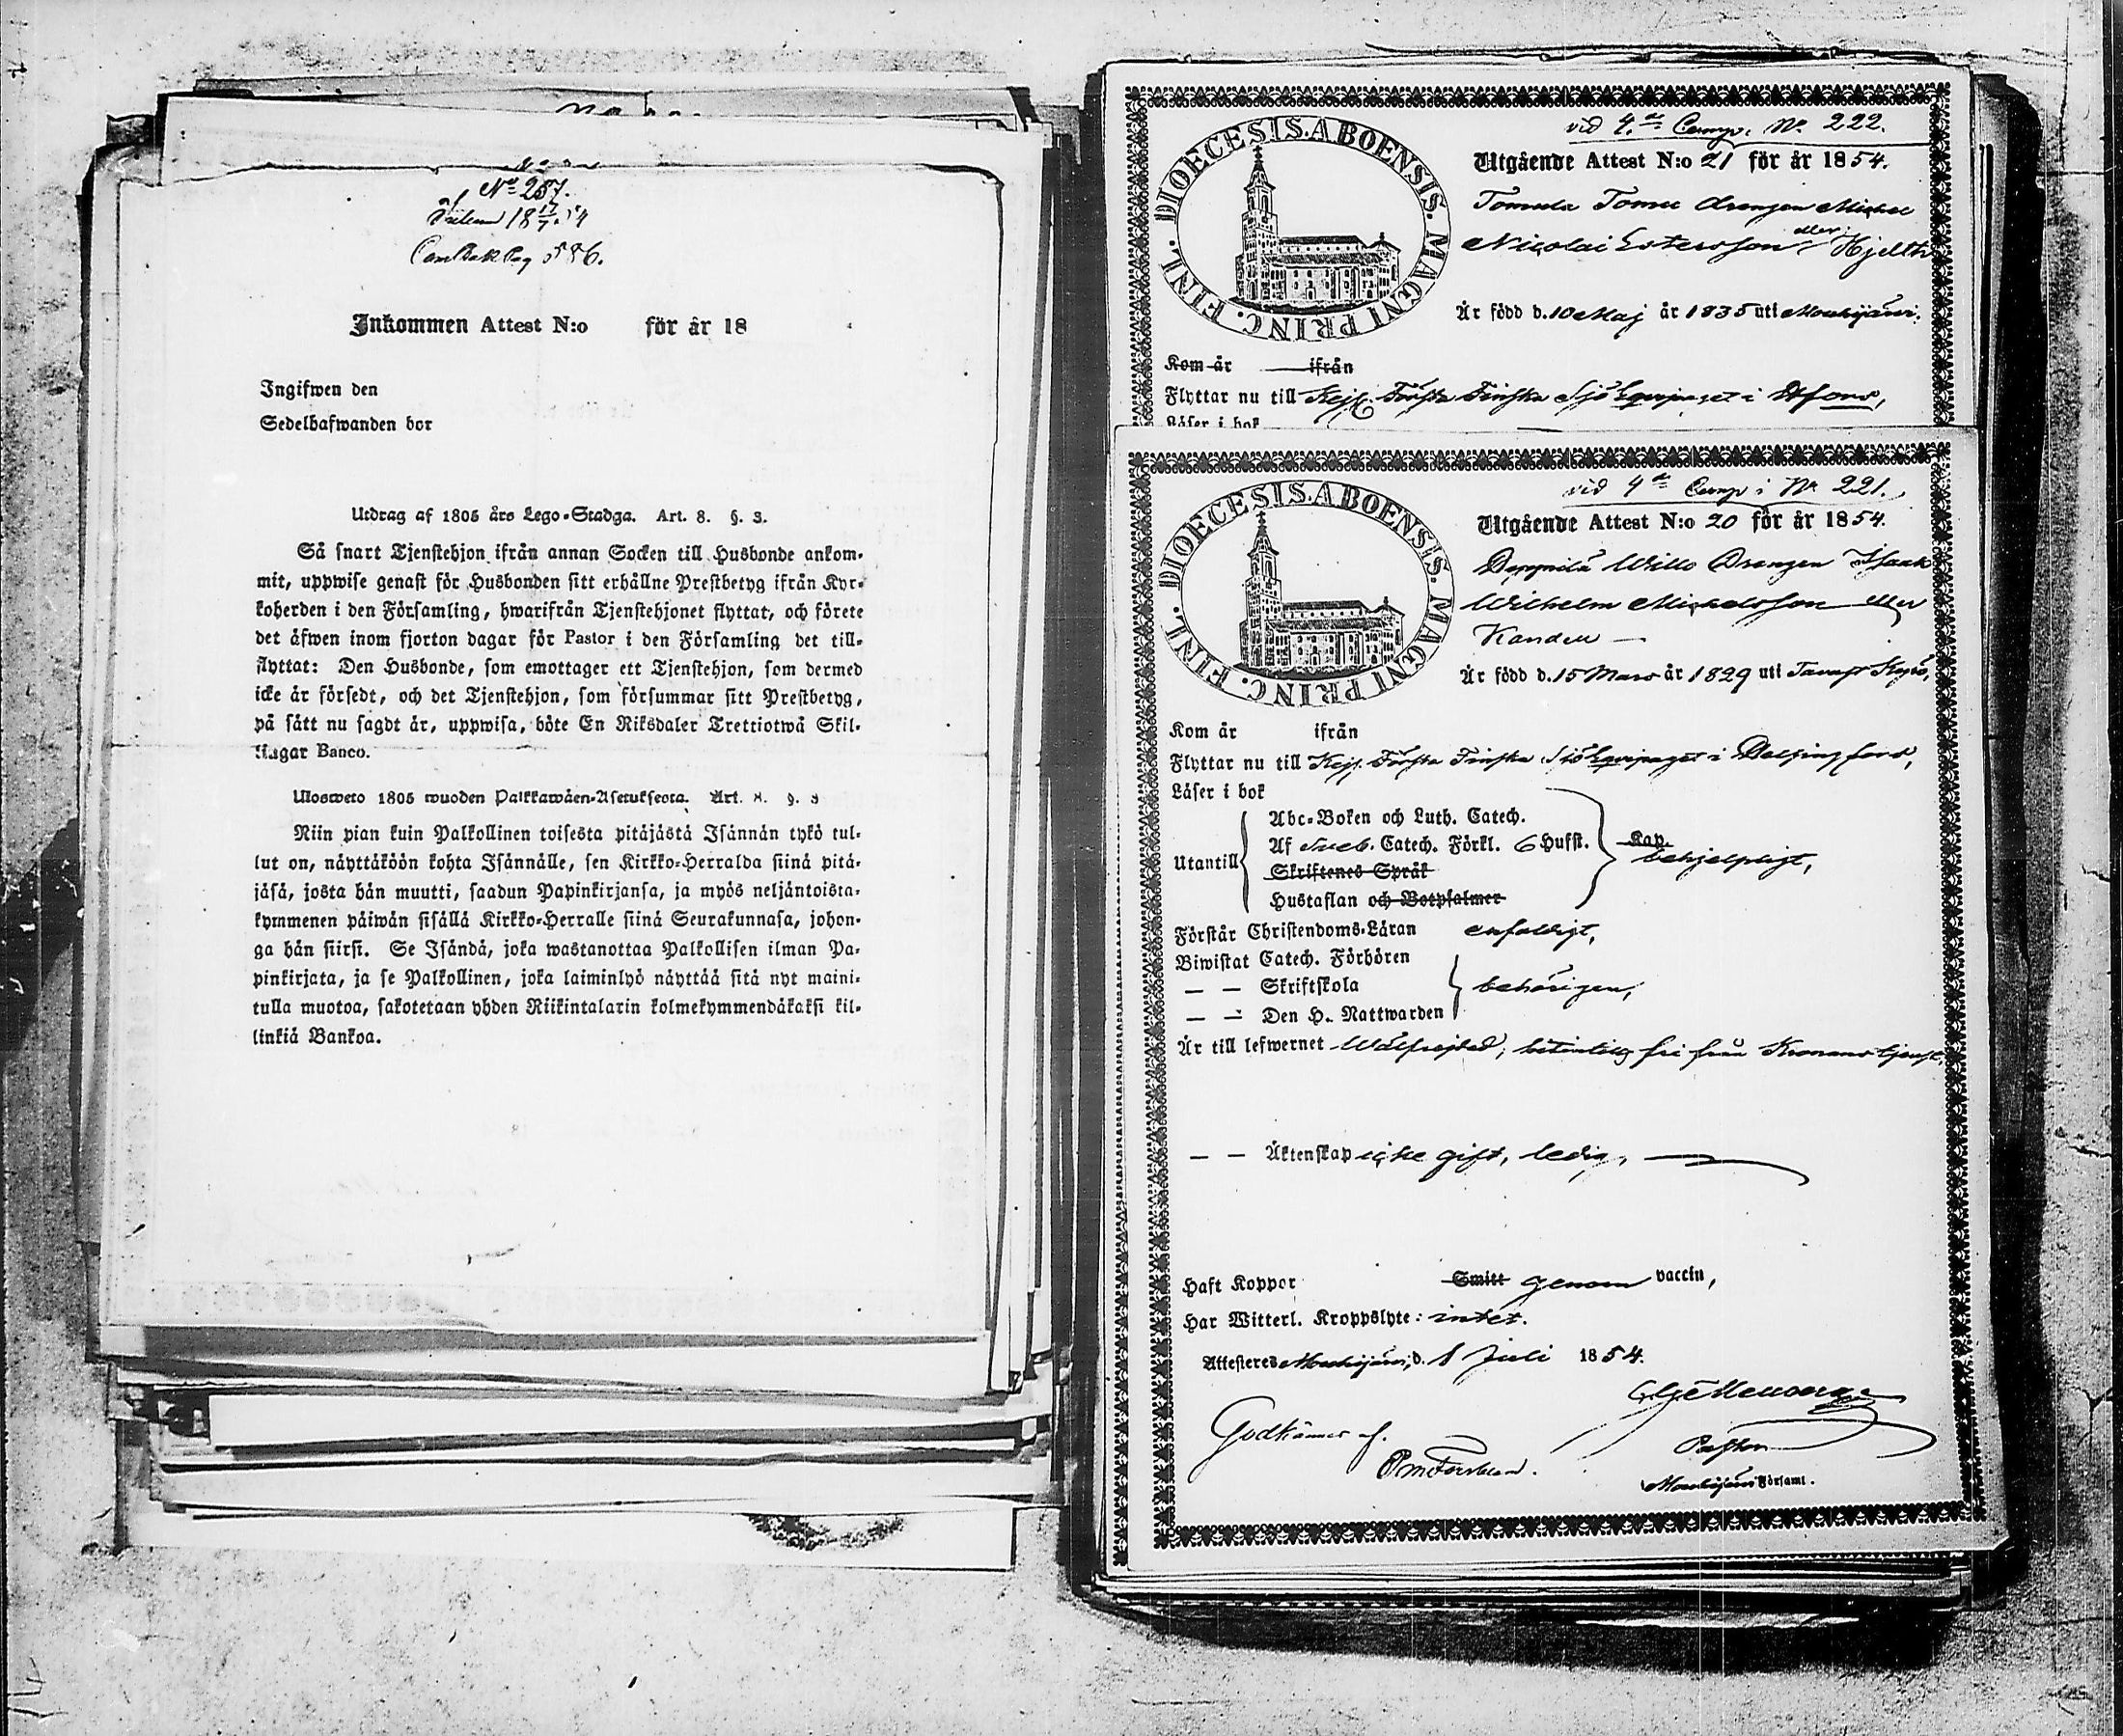 No 257.
Inkommen Attest N:o för år 18
Ingifwen den
Sedelhafwanden bor
Utdrag af 1805 års Lego-Stadga. Art. 8. §. 3.
Så snart Tjenstehjon ifrån annan Socken till Husbonde ankom-
mit, uppwise genast för Husbonden sitt erhållne Prestbetyg ifrån Kyr-
koherden i den Församling, hwarifrån Tjenstehjonet flyttat, och förete
det äfwen inom fjorton dagar för Pastor i den Församling det till-
flyttat: Den Husbonde, som emottager ett Tjenstehjon, som dermed
icke är försedt, och det Tjenstehjon, som försummar sitt Prestbetyg,
på sätt nu sagdt är, uppwisa, böte En Riksdaler Trettiotwå Skil-
lingar Banco.
Ulosweto 1805 wuoden Palkkawäen-Asetuksesta. Art. 8. §. 3
Niin pian kuin Palkollinen toisesta pitäjästä Isännän tykö tul-
lut on, näyttäköön kohta Isännälle, sen Kirkko-Herralda siinä pitä-
jäsä, josta hän muutti, saadun Papinkirjansa, ja myös neljäntoista-
kymmenen päiwän sisällä Kirkko-Herralle siinä Seurakunnasa, johon-
ga hän siirsi. Se Isändä, joka wastanottaa Palkollisen ilman Pa-
pinkirjata, ja se Palkollinen, joka laiminlyö näyttää sitä nyt maini-
tulla muotoa, sakotetaan yhden Riikintalarin kolmekymmendäkaksi kil-
linkiä Bankoa.
vid 4de Comp. No 222.
DIOECESIS. ABOENSIS. MAGNI PRINC. FINL.
Utgående Attest N:o 21 för år 1854.
Tomula Tomu Drengen Michel
Nicolai Estersson eller Hjelth
Är född d. 10 Maj år 1835 uti Mouhijärvi.
Kom år ifrån
Flyttar nu till Kejs. Första Finska Sjö Equipaget i Hfors,
Läser i bok
vid 4de Comp. No 221.
DIOECESIS. ABOENSIS. MAGNI PRINC. FINL.
Utgående Attest N:o 20 för år 1854.
Wills Drengen Isaak
Wilhelm Michelsson eller
Kanden
Är född d. 15 Mars år 1829 uti Tavast Kyro,
Kom år ifrån
Flyttar nu till Kejs. Första Finska Sjö Equipaget i Helsingfors,
Läser i bok
Abc-Boken och Luth. Catech.
Af Sveb. Catech. Förkl. 6 Hufst. Kap.
Utantill behjelpligt,
Skriftenes Språk
Hustaflan och Botpsalmer
Förstår Christendoms-Läran enfaldigt,
Biwistat Catech. Förhören
— — Skriftskola behörigen,
— — Den H. Nattwarden
Är till lefwernet Wälfrejdad, fri från Kronans tjenst,
— — Äktenskap icke gift, ledig,
Haft Koppor Smitt genom vaccin,
Har Witterl. Kroppslyte: intet.
Attesteres Mouhijärvi, d. 1 Juli 1854.
Godkännes af.
Pastor
Mouhijärvi Församl.